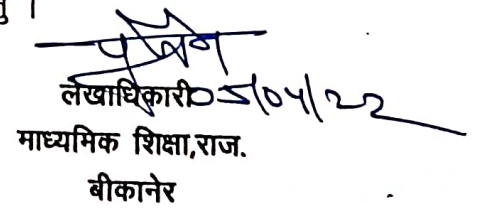 लेखाधिकारी 05/04/22
माध्यमिक शिक्षा,राज.
बीकानेर